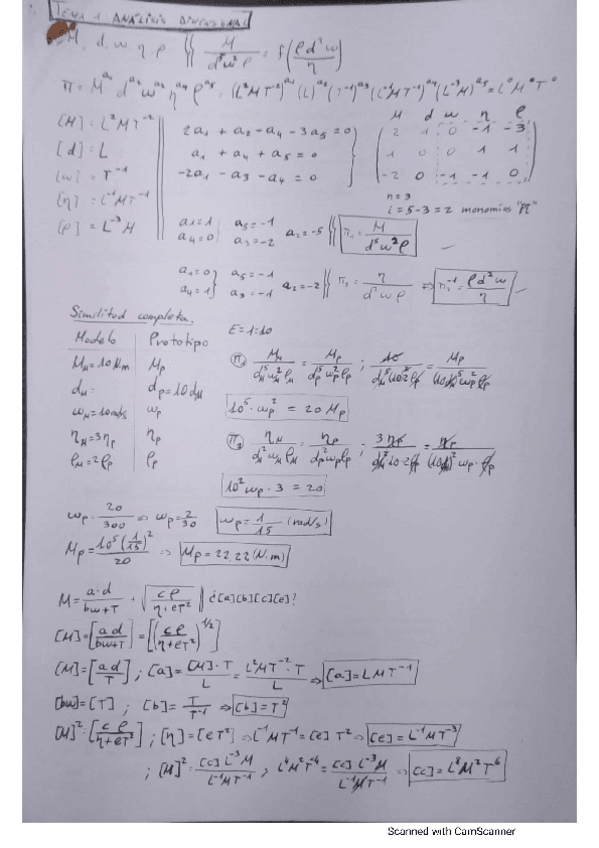 TEMA 1 ANÁLISIS DIMENSIONAL
M, d, w, η, ρ || M / d⁵w²ρ = f(ρd²w / η)
π = M^a₁ d^a₂ w^a₃ η^a₄ ρ^a₅ = (L²MT⁻²)^a₁ (L)^a₂ (T⁻¹)^a₃ (L⁻¹MT⁻¹)^a₄ (L⁻³M)^a₅ = L⁰M⁰T⁰
[M] = L²MT⁻²
[d] = L
[w] = T⁻¹
[η] = L⁻¹MT⁻¹
[ρ] = L⁻³M
2a₁ + a₂ - a₄ - 3a₅ = 0
a₁ + a₄ + a₅ = 0
-2a₁ - a₃ - a₄ = 0
M d w η ρ
2 1 0 -1 -3
1 0 0 1 1
-2 0 -1 -1 0
n = 3
i = 5-3 = 2 monomios "π"
a₁=1 a₄=0 } a₅=-1 a₃=-2 a₂=-5 || π₁ = M / d⁵w²ρ
a₁=0 a₄=1 } a₅=-1 a₃=-1 a₂=-2 || π₂ = η / d²wρ ⇒ π₂⁻¹ = ρd²w / η
Similitud completa.
E = 1:10
Modelo Prototipo
M_M = 10 Nm M_P
d_M = d_P = 10 d_M
w_M = 10 rad/s w_P
η_M = 3η_P η_P
ρ_M = 2ρ_P ρ_P
π₁ M_M / d_M⁵w_M²ρ_M = M_P / d_P⁵w_P²ρ_P ; 10 / d_M⁵10²2ρ_P = M_P / (10d_M)⁵w_P²ρ_P
10⁵ · w_P² = 20 M_P
π₂ η_M / d_M²w_Mρ_M = η_P / d_P²w_Pρ_P ; 3η_P / d_M²10·2ρ_P = η_P / (10d_M)²w_P·ρ_P
10² w_P · 3 = 20
w_P = 20/300 ⇒ w_P = 2/30 w_P = 1/15 (rad/s)
M_P = 10⁵(1/15)² / 20 ⇒ M_P = 22,22 (N·m)
M = a·d / bw+T + √(cρ / η+eT²) || ¿[a][b][c][e]?
[M] = [ad / bw+T] = [(cρ / η+eT²)^1/2]
[M] = [ad / T] ; [a] = [M]·T / L = L²MT⁻²·T / L ⇒ [a] = LMT⁻¹
[bw] = [T] ; [b] = T / T⁻¹ ⇒ [b] = T²
[M]² = [cρ / η+eT²] ; [η] = [eT²] ⇒ L⁻¹MT⁻¹ = [e] T² ⇒ [e] = L⁻¹MT⁻³
; [M]² = [c] L⁻³M / L⁻¹MT⁻¹ ; L⁴M²T⁻⁴ = [c] L⁻³M / L⁻¹MT⁻¹ ⇒ [c] = L⁶M²T⁻⁵
Scanned with CamScanner